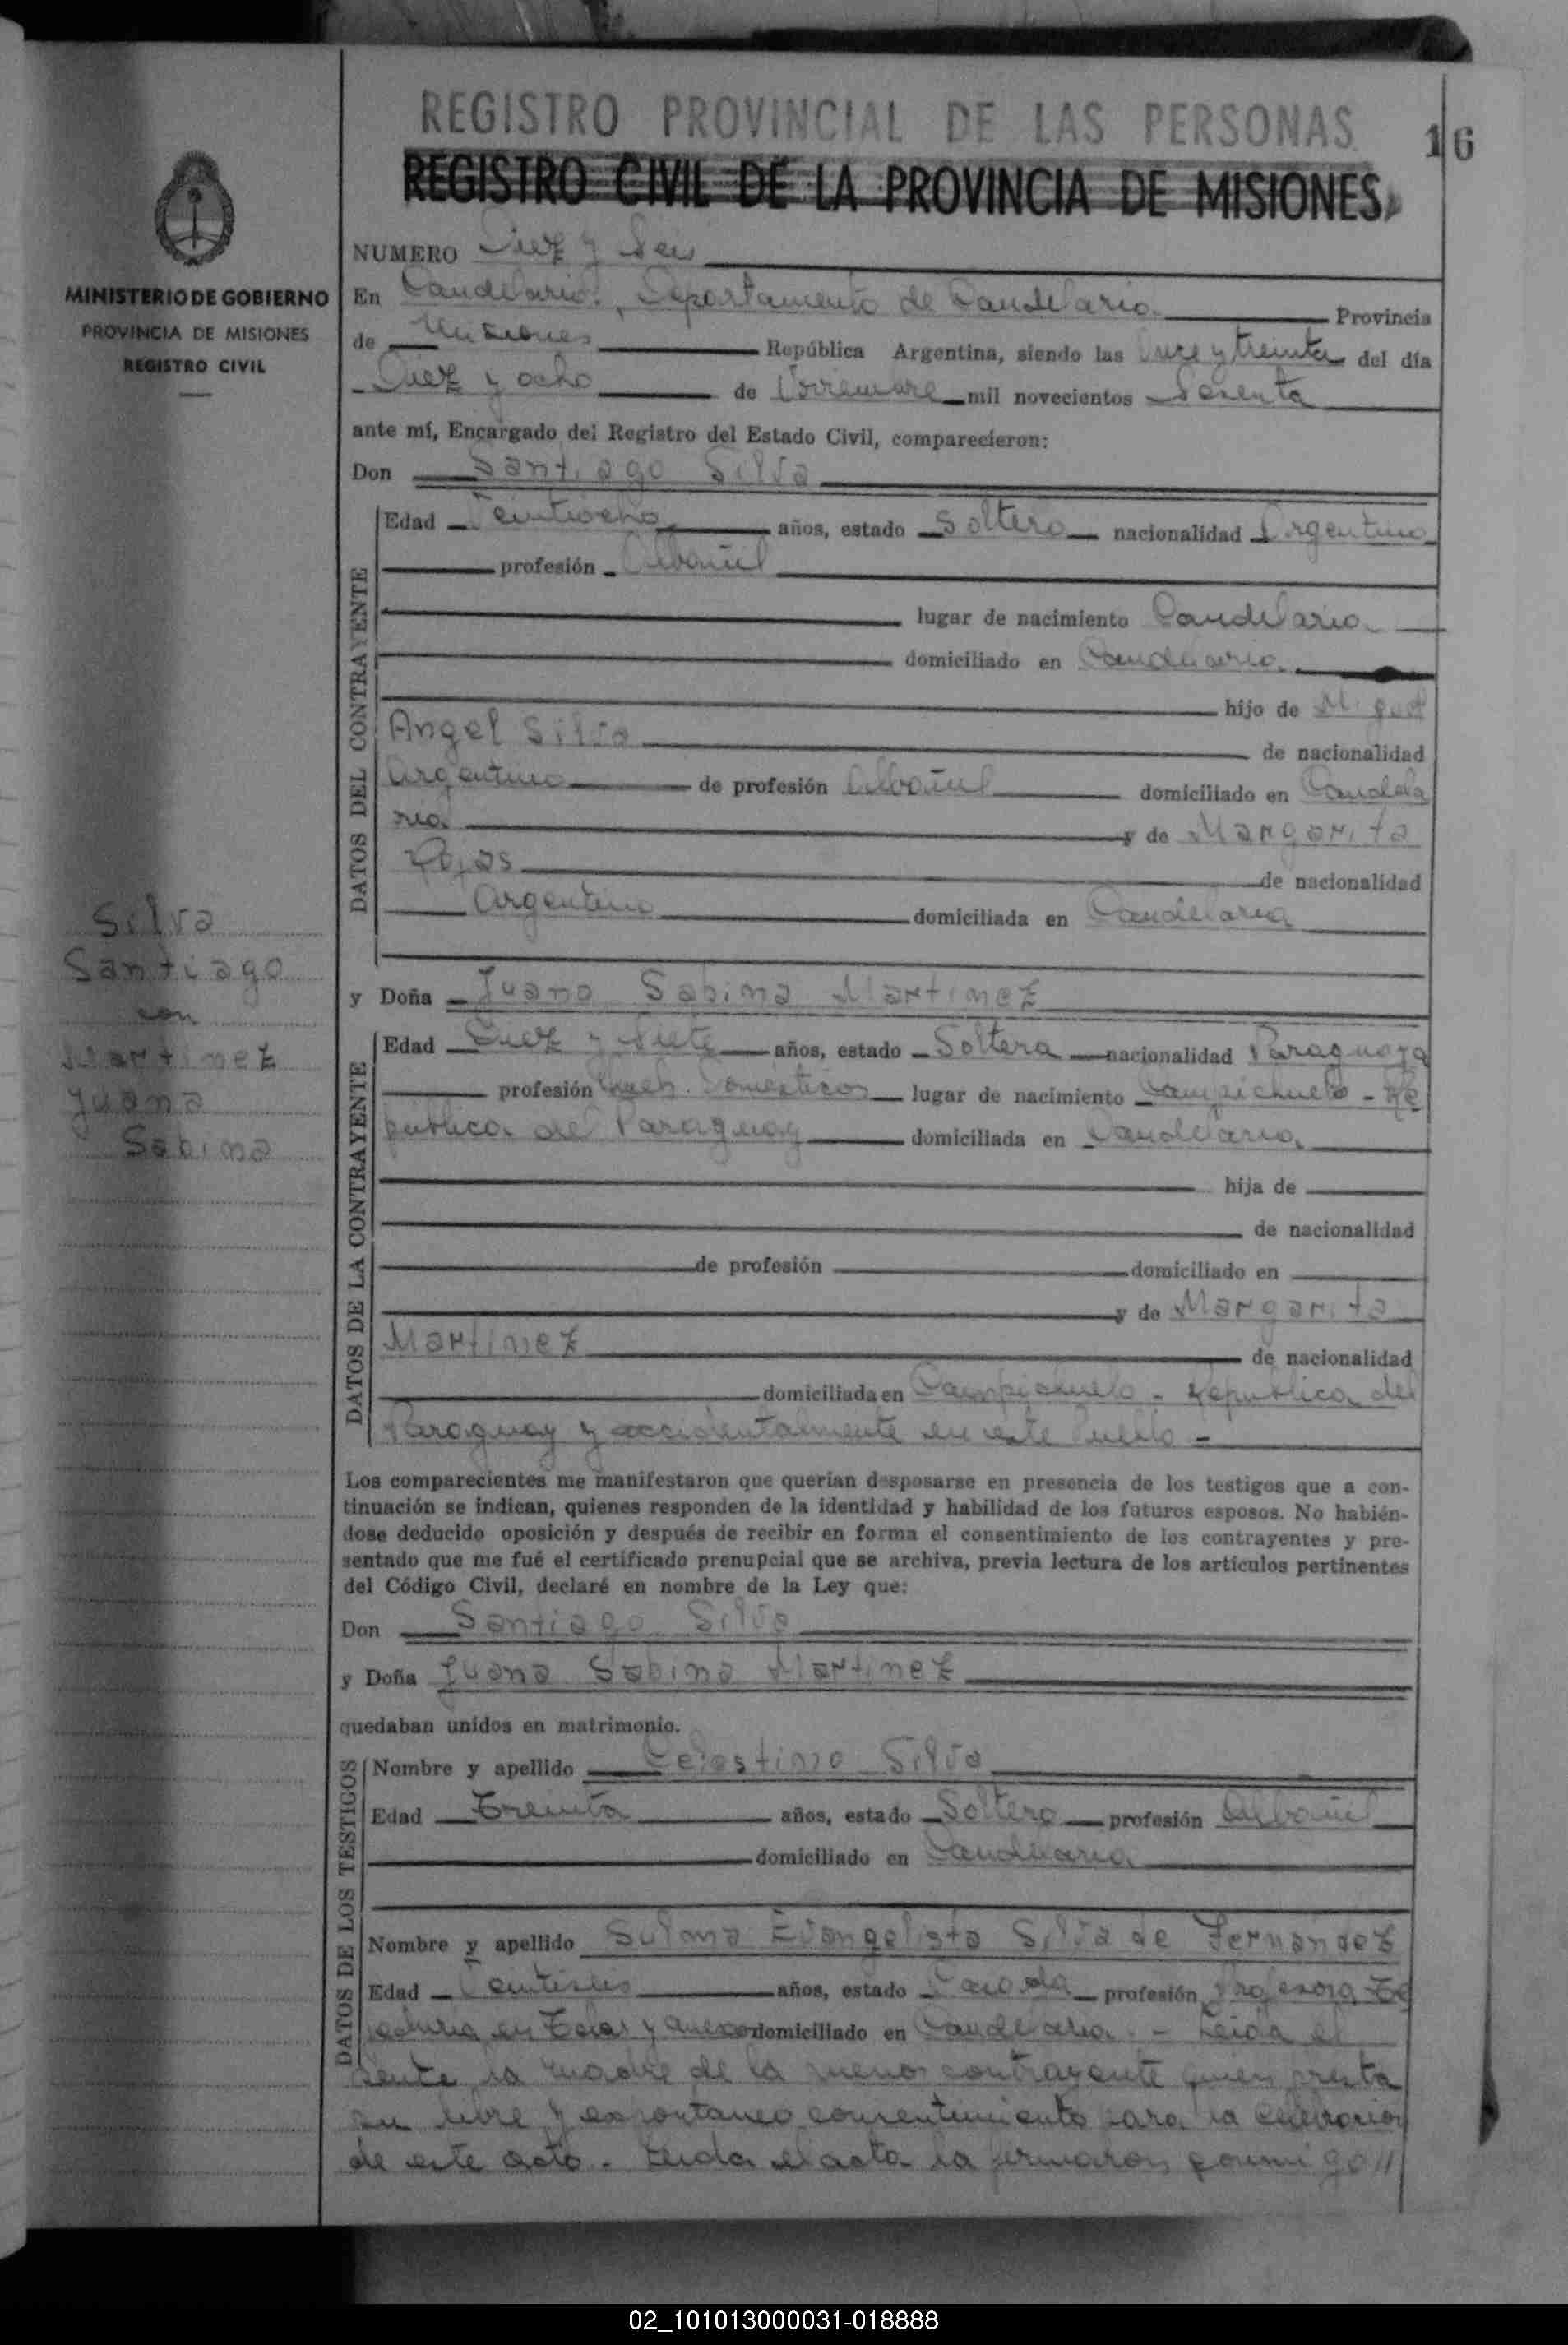 REGISTRO PROVINCIAL DE LAS PERSONAS
16
REGISTRO CIVIL DE LA PROVINCIA DE MISIONES
MINISTERIO DE GOBIERNO
PROVINCIA DE MISIONES
REGISTRO CIVIL
Silva
Santiago
con
Martinez
Juana
Sabina
NUMERO Diez y Seis
En Candelaria, Departamento de Candelaria Provincia
de Misiones República Argentina, siendo las once y treinta del día
Diez y ocho de mil novecientos Sesenta
ante mí, Encargado del Registro del Estado Civil, comparecieron:
Don Santiago Silva
DATOS DEL CONTRAYENTE
Edad Veintiocho años, estado Soltero nacionalidad Argentino
profesión Albañil
lugar de nacimiento Candelaria
domiciliado en Candelaria
hijo de Miguel
Angel Silva de nacionalidad
Argentino de profesión Albañil domiciliado en Candela
ria y de Margarita
Rojas de nacionalidad
Argentina domiciliada en Candelaria
y Doña Juana Sabina Martinez
DATOS DE LA CONTRAYENTE
Edad Diez y Siete años, estado Soltera nacionalidad Paraguaya
profesión Domésticos lugar de nacimiento Campichuelo - Re
pública de Paraguay domiciliada en Candelaria
hija de
de nacionalidad
de profesión domiciliado en
y de Margarita
Martinez de nacionalidad
domiciliada en Campichuelo - República del
Paraguay y accidentalmente en este Pueblo -
Los comparecientes me manifestaron que querían desposarse en presencia de los testigos que a con-
tinuación se indican, quienes responden de la identidad y habilidad de los futuros esposos. No habién-
dose deducido oposición y después de recibir en forma el consentimiento de los contrayentes y pre-
sentado que me fué el certificado prenupcial que se archiva, previa lectura de los artículos pertinentes
del Código Civil, declaré en nombre de la Ley que:
Don Santiago Silva
y Doña Juana Sabina Martinez
quedaban unidos en matrimonio.
DATOS DE LOS TESTIGOS
Nombre y apellido Celestino Silva
Edad Treinta años, estado Soltero profesión Albañil
domiciliado en Candelaria
Nombre y apellido Sulma Evangelista Silva de Fernández
Edad Veintiseis años, estado Casada profesión Profesora Te
jeduría en Telar y anexo domiciliado en Candelaria. - Leida el
sente la madre de la menor contrayente quien presta
su libre y espontaneo consentimiento para la celebración
de este acto. - Leida el acta la firmaron conmigo //
02_101013000031-018888